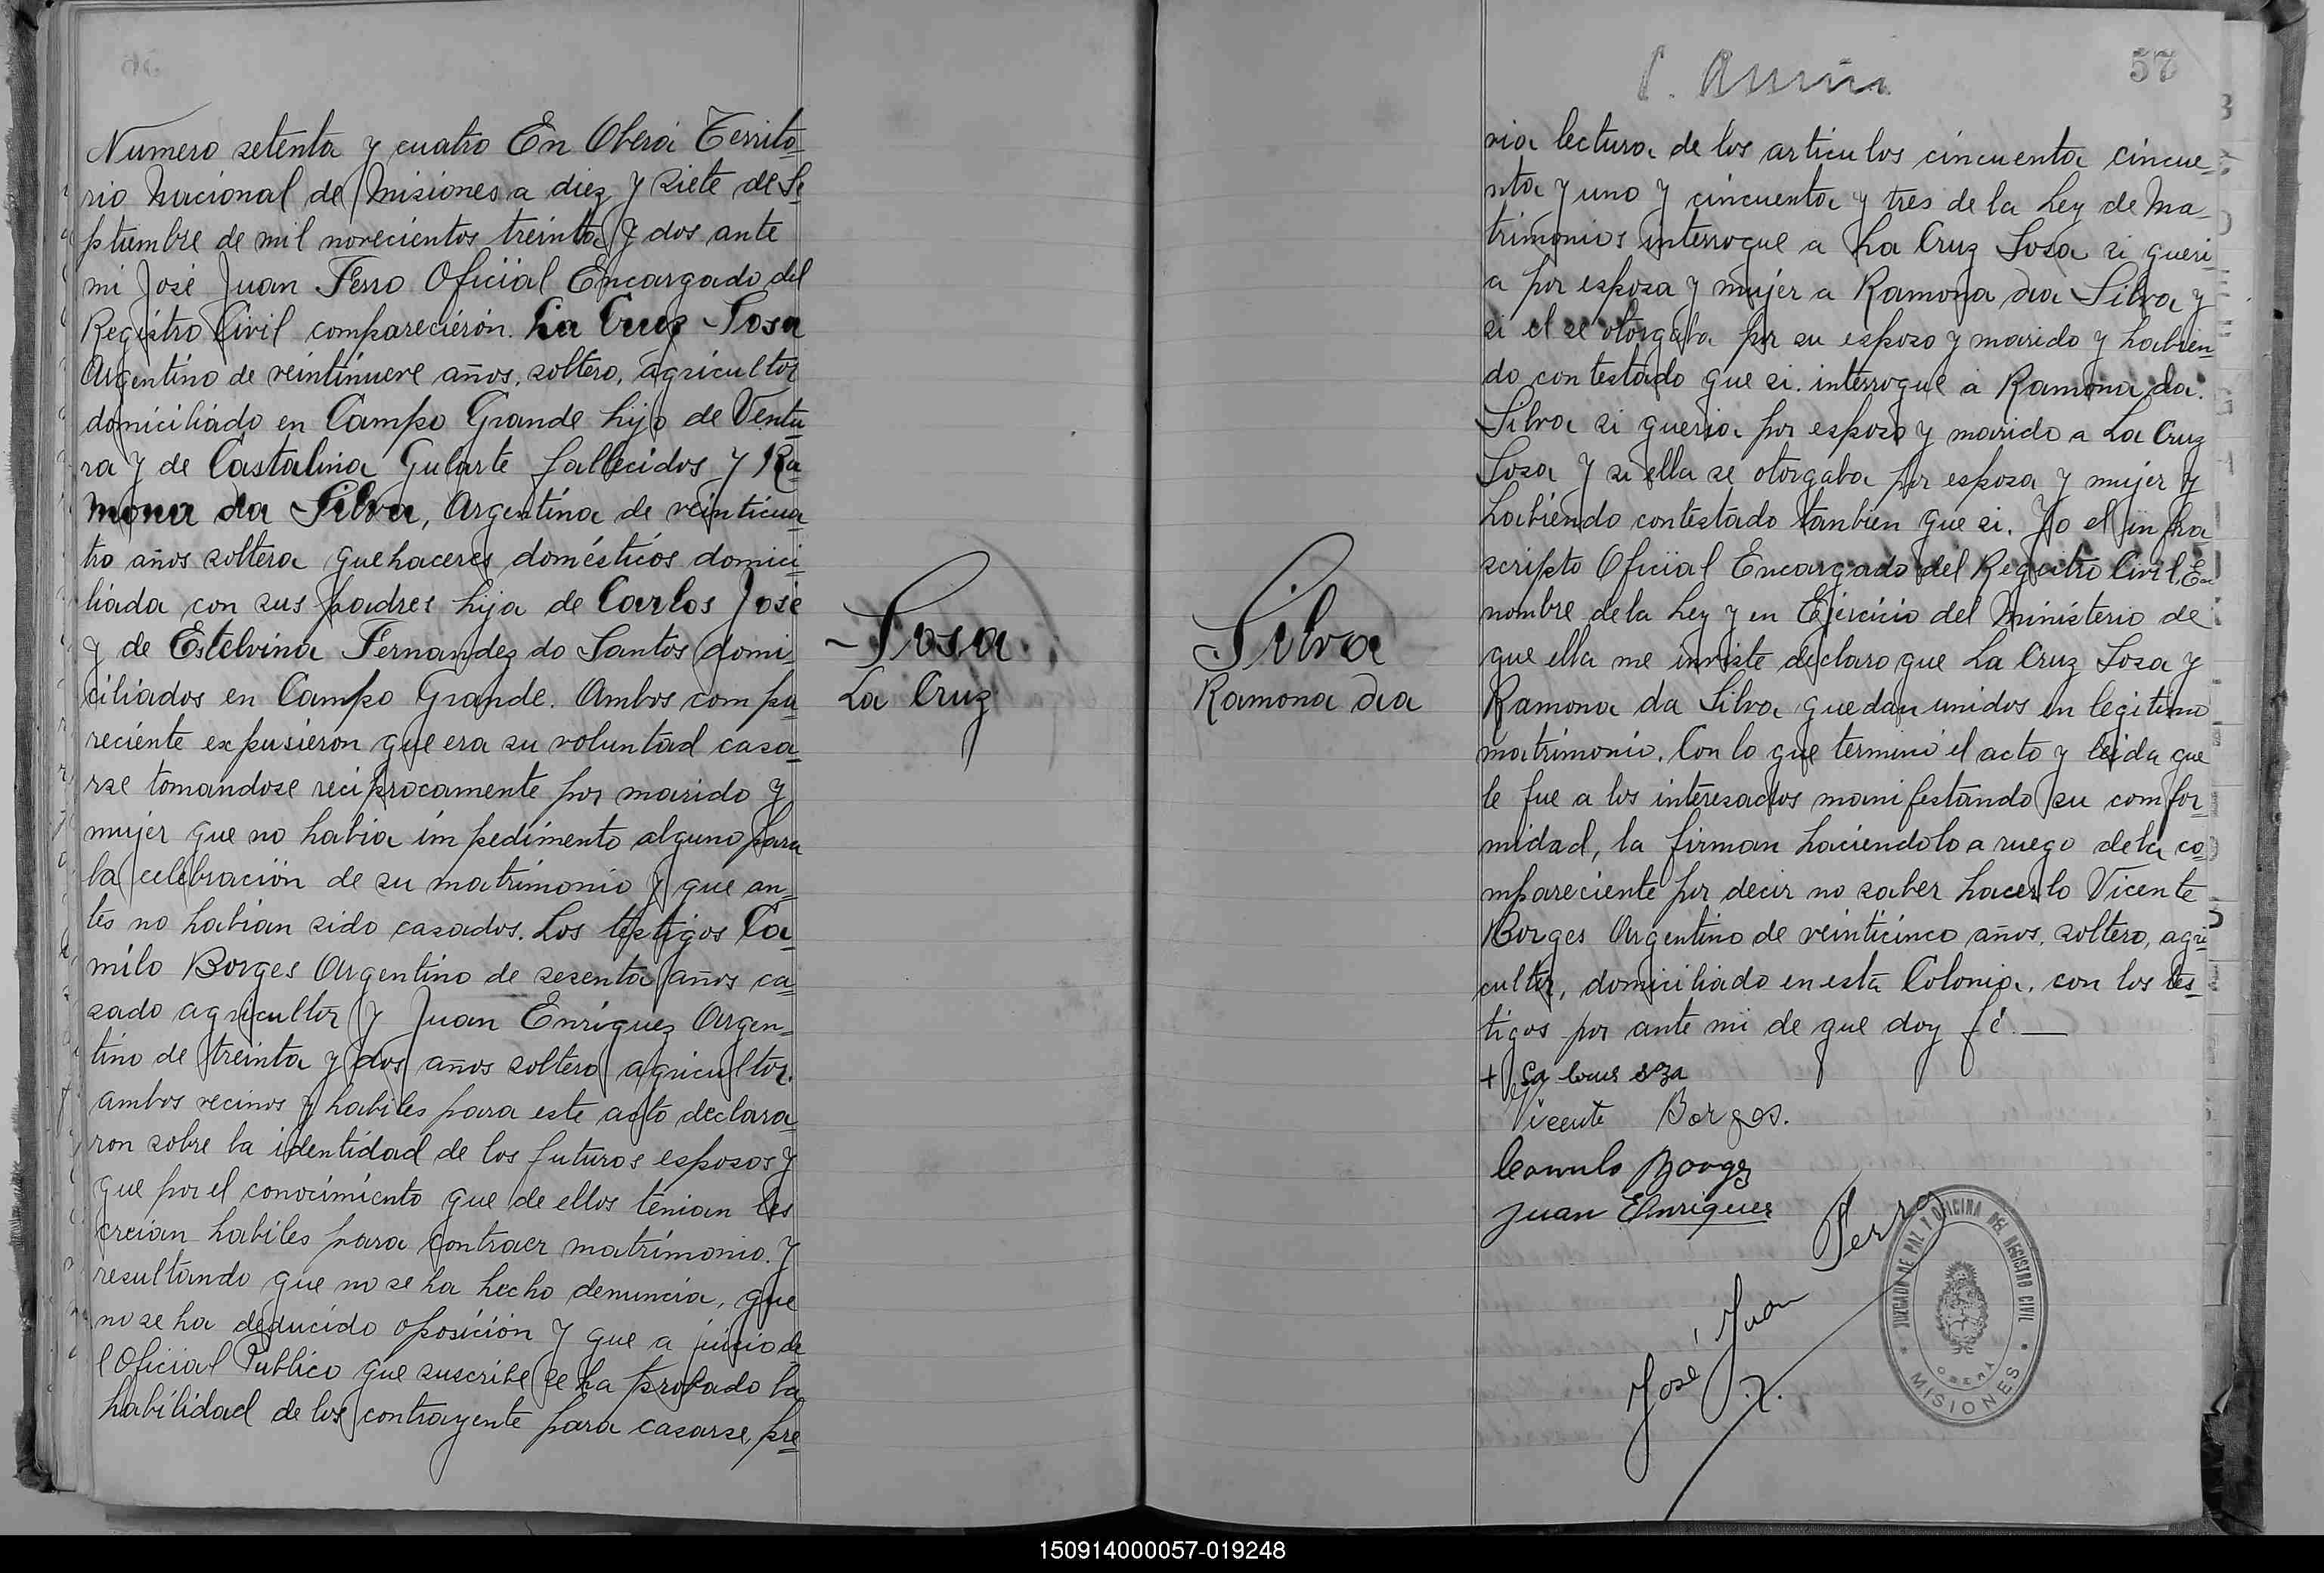 Numero setenta y cuatro En Oberá Territo=
rio Nacional de Misiones a diez y siete de Se=
ptiembre de mil novecientos treinta y dos ante
mi José Juan Ferro Oficial Encargado del
Registro Civil comparecierón. La Cruz Sosa
Argentino de veintinueve años, soltero, agricultor
domiciliado en Campo Grande hijo de Ventu=
ra y de Castalina Gularte fallecidos y Ra=
mona da Silva, Argentina de veinticua=
tro años soltera quehaceres domésticos domici=
liada con sus padres hija de Carlos José
y de Estelvina Fernandez do Santos domi=
ciliados en Campo Grande. Ambos compa=
reciente expusieron que era su voluntad casa=
rse tomandose reciprocamente por marido y
mujer que no habia impedimento alguno para
la celebración de su matrimonio y que an=
tes no habian sido casados. Los testigos Ca=
milo Borges Argentino de sesenta años ca=
sado agricultor y Juan Enriquez Argen=
tino de treinta y dos años soltero agricultor.
ambos vecinos y habiles para este acto declara=
ron sobre la identidad de los futuros esposos y
que por el conocimiento que de ellos tenian les
creian habiles para contraer matrimonio. y
resultando que no se ha hecho denuncia, que
no se ha deducido oposición y que a juicio de
l Oficial Publico que suscribe se ha probado la
habilidad de los contrayente para casarse, pre=
Sosa
La Cruz
Silva
Ramona da
57
via lectura de los articulos cincuenta cincue=
nta y uno y cincuenta y tres de la Ley de Ma=
trimonios interrogue a La Cruz Sosa si queri=
a por esposa y mujer a Ramona da Silva y
si el se otorgaba por su esposo y marido y habien
do contestado que si. interrogue a Ramona da.
Silva si queria por esposo y marido a La Cruz
Sosa y si ella se otorgaba por esposa y mujer y
habiendo contestado tanbien que si. Yo el infra
scripto Oficial Encargado del Registro Civil, En
nombre de la Ley y en Ejercicio del Ministerio de
que ella me inviste declaro que La Cruz Sosa y
Ramona da Silva quedan unidos en legitimo
matrimonio. Con lo que terminó el acto y leida que
le fue a los interesados manifestando su comfor=
midad, la firman haciendolo a ruego de la co=
mpareciente por decir no saber hacerlo Vicente
Borges Argentino de veinticinco años, soltero, agri=
cultor, domiciliado en esta Colonia. con los tes=
tigos por ante mi de que doy fé.—
Vicente Borges.
Camilo Borges
Juan Enriquez
José Juan Ferro
JUZGADO DE PAZ Y OFICINA DEL REGISTRO CIVIL
OBERÁ
MISIONES
150914000057-019248